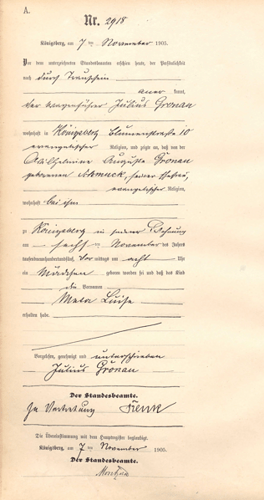 A.
Nr. 2918
Königsberg, am 7 ten November 1905.
Vor dem unterzeichneten Standesbeamten erschien heute, der Persönlichkeit
nach durch Trauschein
aner kannt,
der Julius Gronau
wohnhaft in Königsberg Blumenstraße 10
evangelischer Religion, und zeigte an, daß von der
Wilhelmine Auguste Gronau
geborenen Schmuck, seiner Ehefrau,
evangelischer Religion,
wohnhaft bei ihm
zu Königsberg in seiner Wohnung
am sechsten November des Jahres
tausendneunhundertundfünf, vor mittags um acht Uhr
ein Mädchen geboren worden sei und daß das Kind
die Vornamen
Meta Luise
erhalten habe.
Vorgelesen, genehmigt und unterschrieben
Julius Gronau
Der Standesbeamte.
In Vertretung
Die Übereinstimmung mit dem Hauptregister beglaubigt.
Königsberg, am 7 ten November 1905.
Der Standesbeamte.